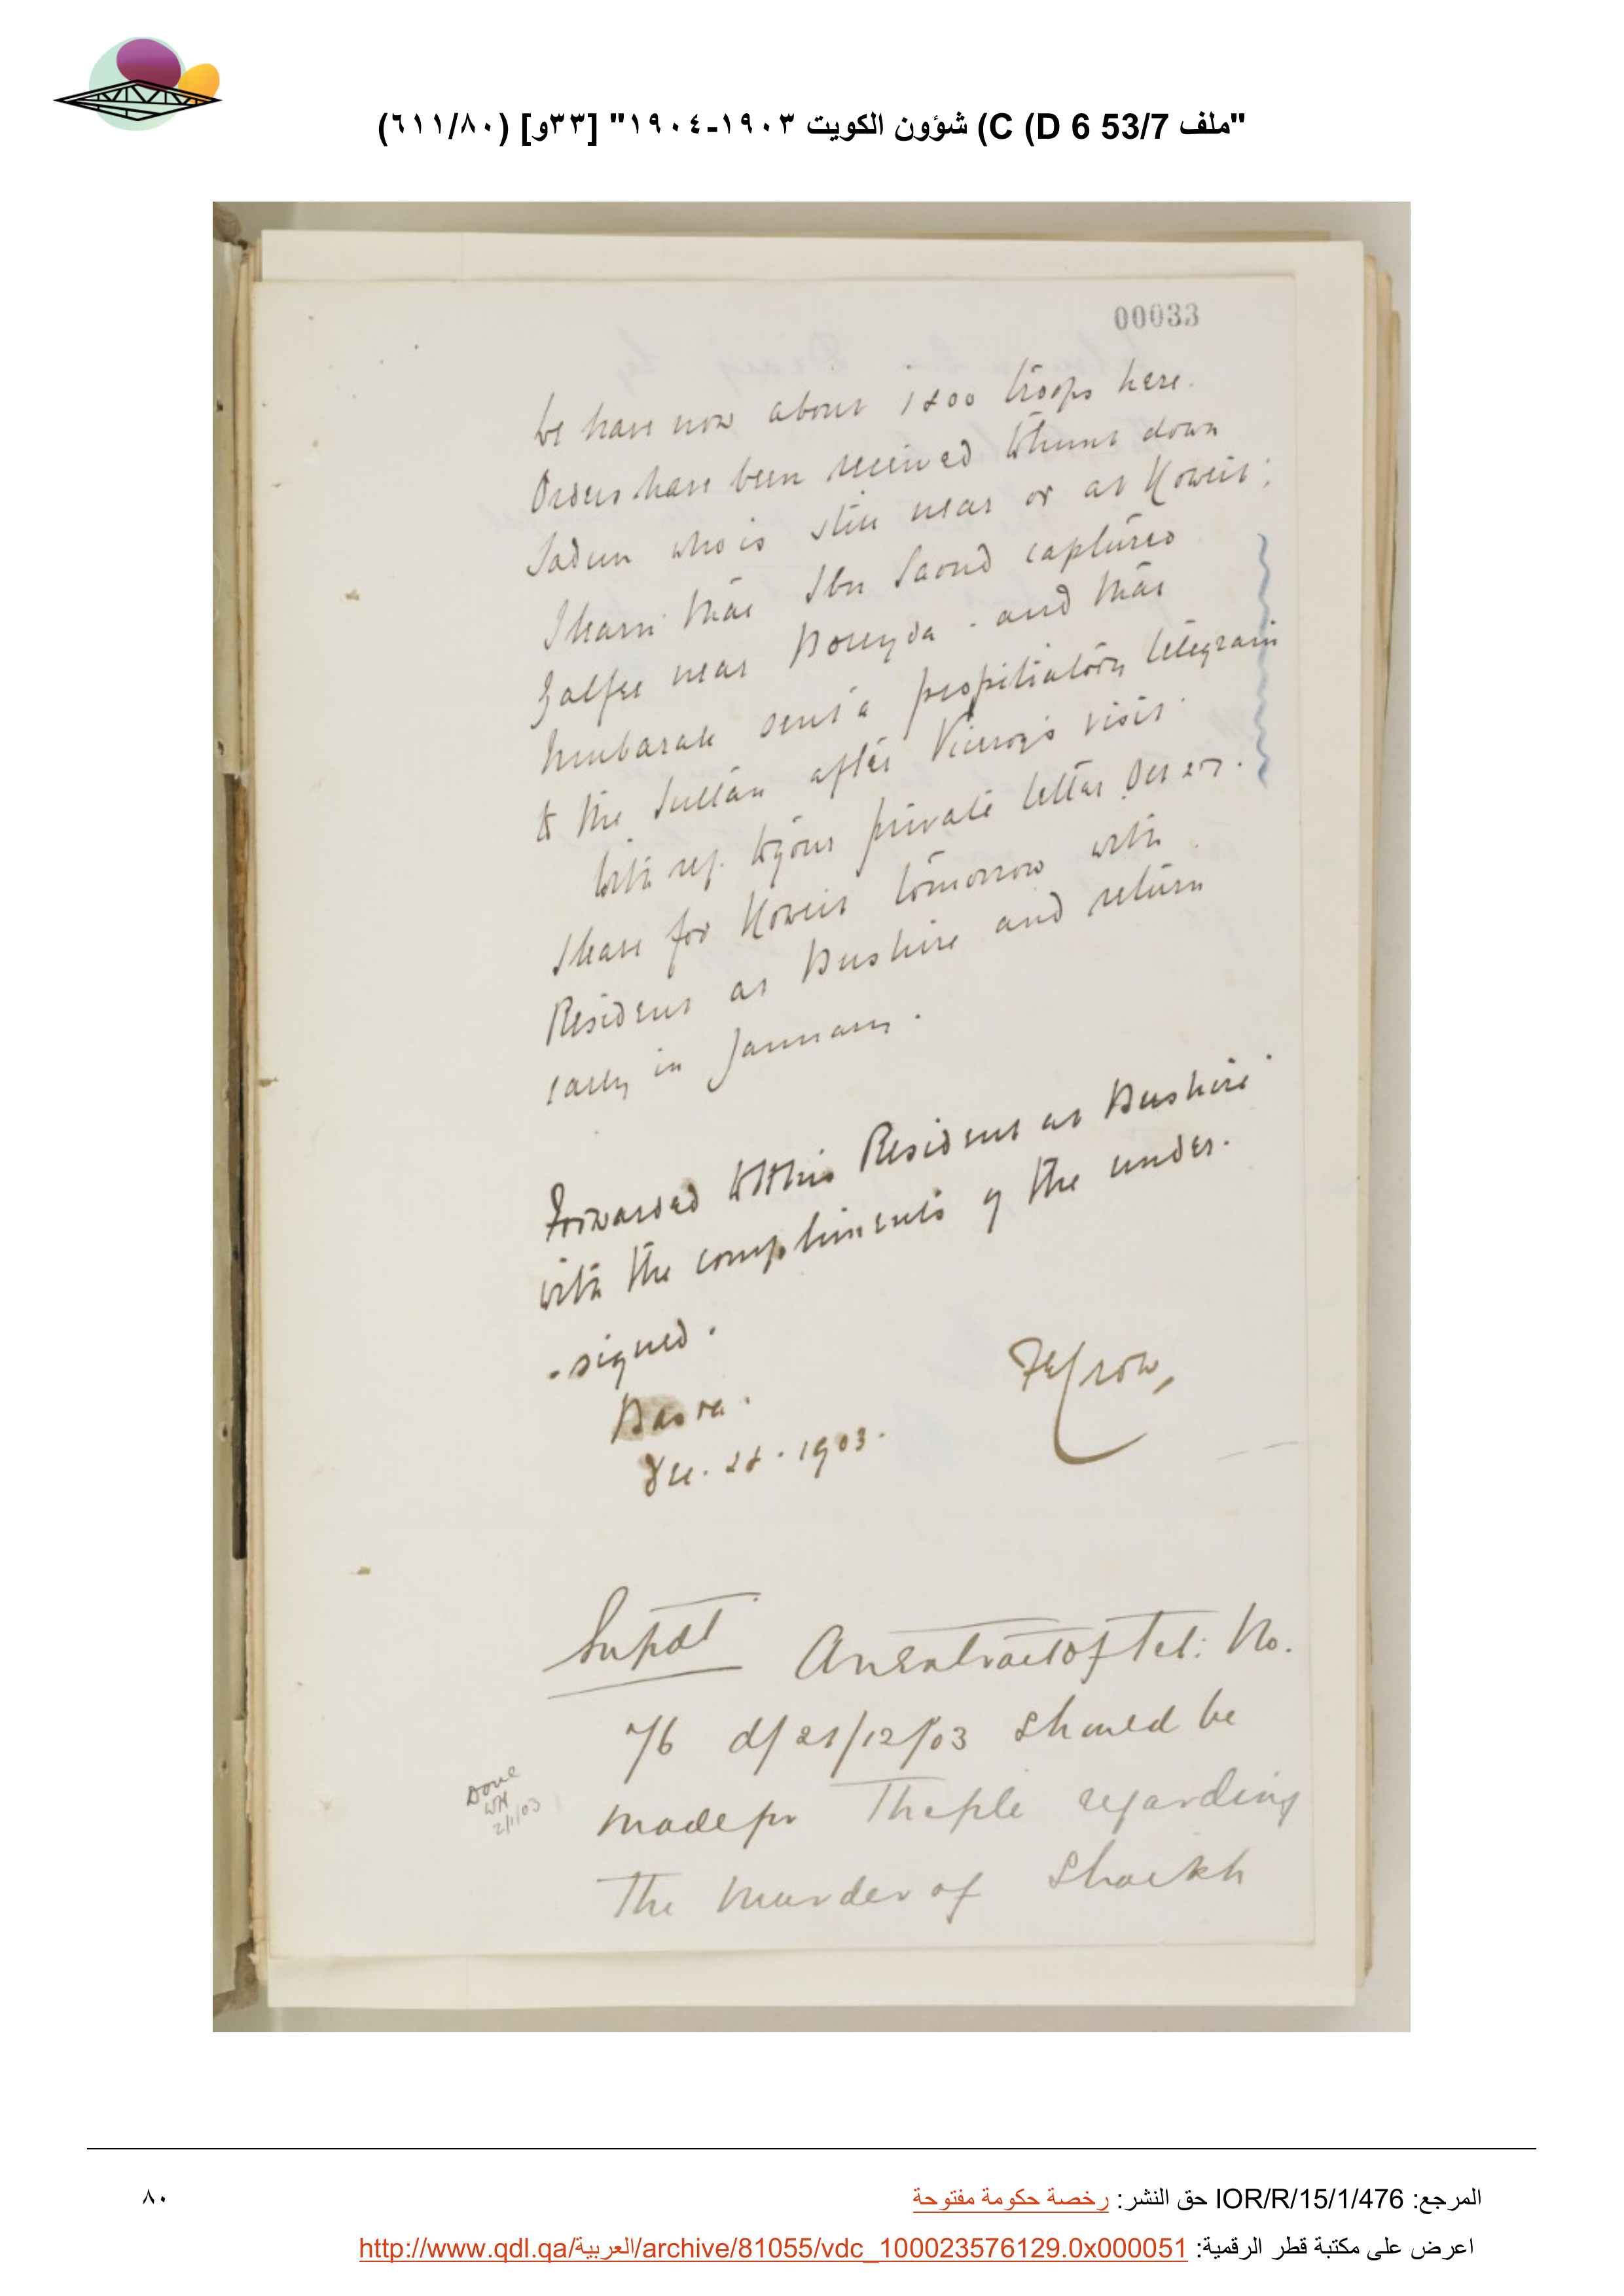 "ملف 53/7 C (D 6) شؤون الكويت ١٩٠٣-١٩٠٤" [٣٣و] (٦١١/٨٠)
00033
We have now about 1800 troops here.
Orders have been received to hunt down
Sadun who is still near or at Koweit;
I learn that Ibn Saoud captured
Zalfee near Boreyda - and that
Mubarak sent a propitiatory telegram
to the Sultan after Viceroy's visit.
With ref. to your private letter Oct 27.
I leave for Koweit tomorrow with
Resident at Bushire and return
early in January.
Forwarded to the Resident at Bushire
with the compliments of the under-
-signed.
Basra.
Dec. 28. 1903.
FECrow,
Supdt An Extract of Tel: No.
76 d/ 21/12/03 should be
made for The file regarding
The Murder of Shaikh
Done
WH
2/1/03
المرجع: IOR/R/15/1/476 حق النشر: رخصة حكومة مفتوحة
٨٠
اعرض على مكتبة قطر الرقمية: http://www.qdl.qa/العربية/archive/81055/vdc_100023576129.0x000051